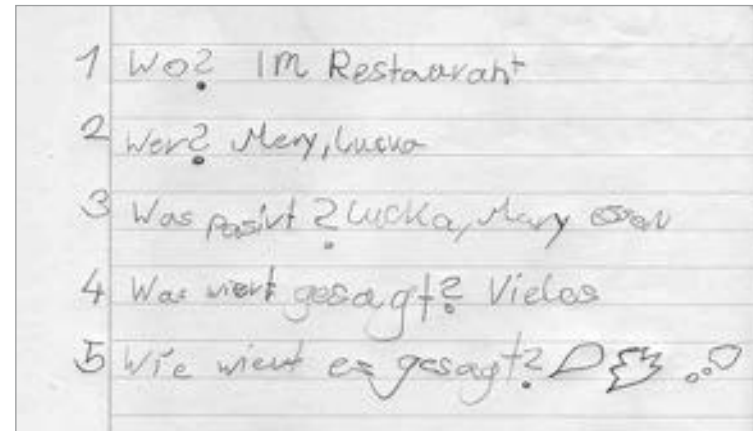 1 Wo? Im Restaurant
2 Wer? Mery, Lucka
3 Was pasirt? Lucka, Mary essen
4 Was wiert gesagt? Vieles
5 Wie wiert es gesagt?